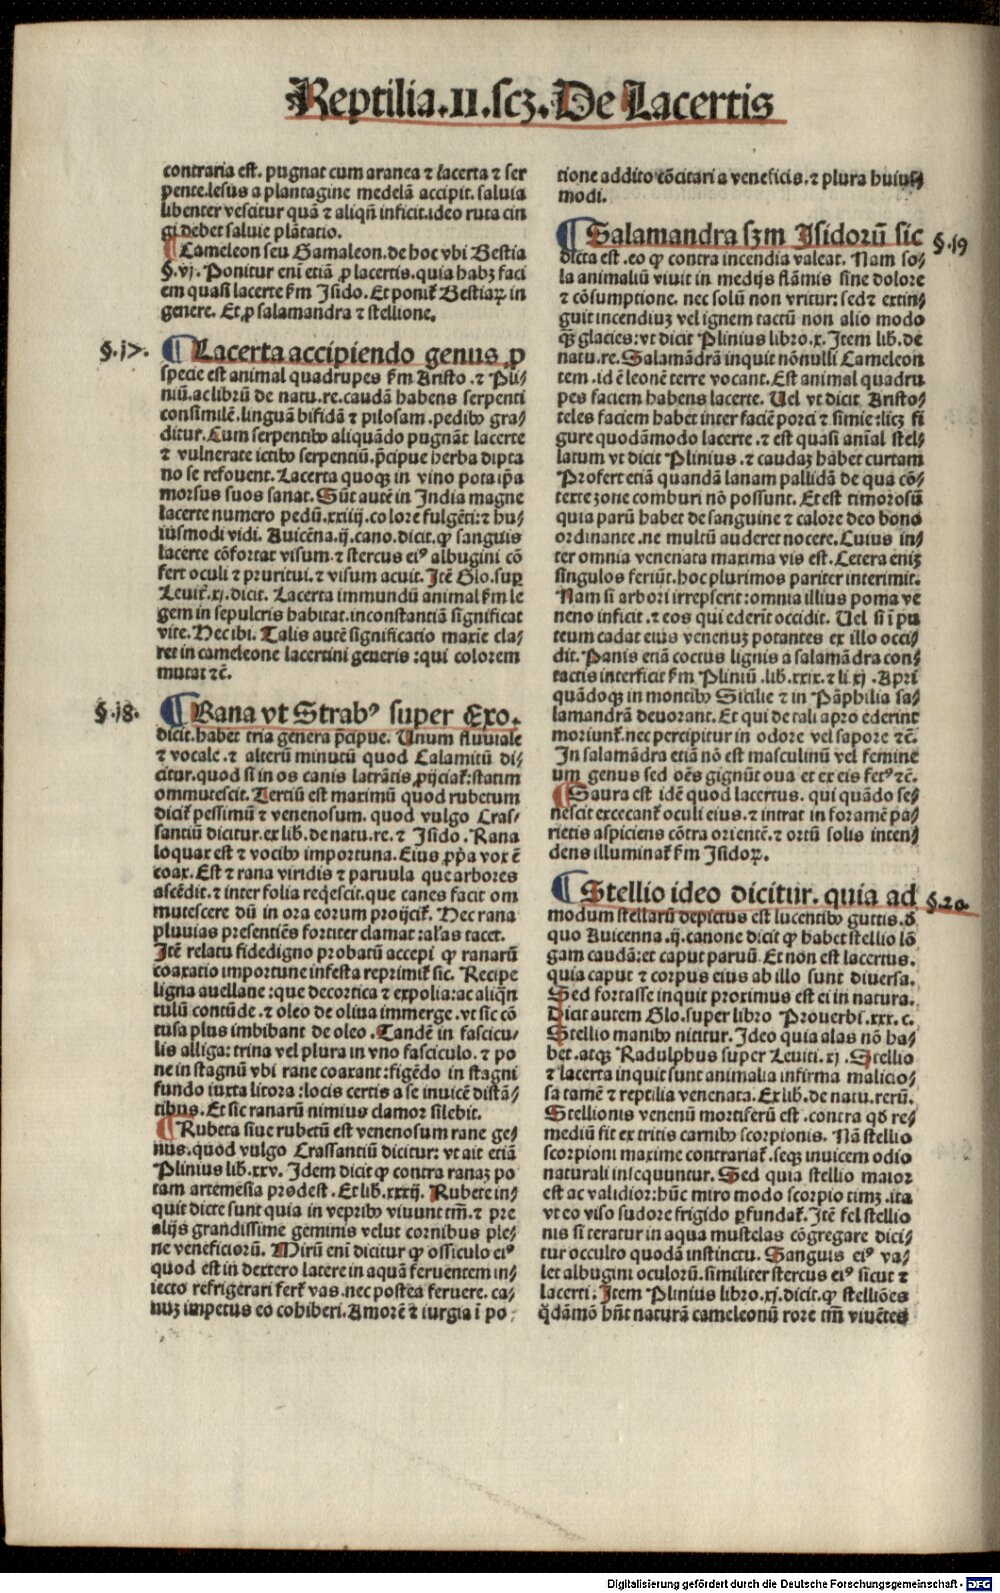 Reptilia.II.scꝫ.De Lacertis
contraria est. pugnat cum aranea ⁊ lacerta ⁊ ser
pente.lesus a plantagine medelā accipit. saluia
libenter vescitur quā ⁊ aliqn̄ inficit.ideo ruta cin
gi debet saluie plātatio.
¶ Cameleon seu Gamaleon.de hoc vbi Bestia
§.vj. Ponitur eni etiā ꝓ lacertis.quia habꝫ faci
em quasi lacerte ẜm Isido. Et ponit᷑ Bestiaꝝ in
genere. Et ꝓ salamandra ⁊ stellione.
§.17.
¶ Lacerta accipiendo genus ꝓ
specie est animal quadrupes ẜm Aristo .⁊ Pli⸗
niū.ac librū de natu.re.caudā habens serpenti
consimilē.linguā bifidā ⁊ pilosam.pedibꝰ gra⸗
ditur.Cum serpentibꝰ aliquādo pugnāt lacerte
⁊ vulnerate ictibꝰ serpentiū.p̄cipue herba dipta
no se refouent. Lacerta quoqꝫ in vino pota ip̄a
morsus suos sanat. Sūt autē in India magne
lacerte numero pedū.xxiiij.colore fulgēti:⁊ hu⸗
iusmodi vidi. Auicēna.ij.cano.dicit.ꝙ sanguis
lacerte cōfortat visum.⁊ stercus eiꝰ albugini cō
fert oculi ⁊ pruritui.⁊ visum acuit. Itē Glo.suꝑ
Leuit᷑.xj.dicit. Lacerta immundū animal ẜm le
gem in sepulcris habitat.inconstantiā significat
vite. Hec ibi. Talis autē significatio maxīe cla⸗
ret in cameleone lacertini generis :qui colorem
mutat ⁊cē.
§.18.
¶ Rana vt Strabꝰ super Exo.
dicit.habet tria genera p̄cipue. Unum fluuiale
⁊ vocale.⁊ alterū minutū quod Calamitū di⸗
citur.quod si in os canis latrātis ꝓijciat᷑:statim
ommutescit. Tertiū est maximū quod rubetum
dicit᷑ pessimū ⁊ venenosum. quod vulgo Cras⸗
santiū dicitur.ex lib.de natu.re.⁊ Isido. Rana
loquax est ⁊ vocibꝰ importuna. Eius ꝓp̄a vox ē
coax. Est ⁊ rana viridis ⁊ paruula que arbores
ascēdit.⁊ inter folia req̄escit.que canes facit om
mutescere dū in ora eorum proijcit᷑. Hec rana
pluuias presentiēs fortiter clamat :al̄as tacet.
Itē relatu fidedigno probatū accepi ꝙ ranarū
coaxatio importune infesta reprimit᷑ sic. Recipe
ligna auellane :que decortica ⁊ expolia:ac aliqn̄
tulū contūde.⁊ oleo de oliua immerge .vt sic cō
tusa plus imbibant de oleo. Tandē in fascicu⸗
lis alliga: trina vel plura in vno fasciculo. ⁊ po
ne in stagnū vbi rane coaxant :figēdo in stagni
fundo iuxta litora :locis certis a se inuicē distā⸗
tibus. Et sic ranarū nimius clamor silebit.
¶ Rubeta siue rubetū est venenosum rane ge⸗
nus.quod vulgo Crassantiū dicitur: vt ait etiā
Plinius lib.xxv. Idem dicit ꝙ contra ranaꝫ po
tam artemesia prodest . Et lib.xxxij. Rubete in⸗
quit dicte sunt quia in vepribꝰ viuunt tm̄.⁊ pre
alijs grandissime geminis velut cornibus ple⸗
ne veneficiorū. Mirū eni dicitur ꝙ ossiculo eiꝰ
quod est in dextero latere in aquā feruentem in⸗
iecto refrigerari fert᷑ vas.nec postea feruere. ca⸗
nuꝫ impetus eo cohiberi.Amorē ⁊ iurgia ī po⸗
tione addito cōcitari a veneficis.⁊ plura huius⸗
modi.
§.19
¶ Salamandra sꝫm Isidorū sic
dicta est .eo ꝙ contra incendia valeat. Nam so⸗
la animaliū viuit in medijs flāmis sine dolore
⁊ cōsumptione. nec solū non vritur: sed ⁊ extin⸗
guit incendiuꝫ vel ignem tactū non alio modo
qꝫ̄ glacies:vt dicit Plinius libro.x. Item lib.de
natu.re.Salamādrā inquit nōnulli Cameleon
tem .id ē leonē terre vocant.Est animal quadru
pes faciem habens lacerte. Uel vt dicit Aristo⸗
teles faciem habet inter faciē porci ⁊ simie:licꝫ fi
gure quodāmodo lacerte .⁊ est quasi anīal stel⸗
latum vt dicit Plinius .⁊ caudaꝫ habet curtam
Profert etiā quandā lanam pallidā de qua cō⸗
texte zone comburi nō possunt. Et est timorosū
quia parū habet de sanguine ⁊ calore deo bono
ordinante.ne multū auderet nocere.Cuius in⸗
ter omnia venenata maxima vis est. Cetera eniꝫ
singulos feriūt.hoc plurimos pariter interimit.
Nam si arbori irrepserit:omnia illius poma ve
neno inficit .⁊ eos qui ederīt occidit. Uel si ī pu
teum cadat eius venenuꝫ potantes ex illo occi⸗
dit. Panis etiā coctus lignis a salamādra con⸗
tactis interficit ẜm Pliniū .lib.xxix.⁊ li.xj . Apri
quādoqꝫ in montibꝰ Sicilie ⁊ in Pāphilia sa⸗
lamandrā deuorant. Et qui de tali apro ederint
moriunt᷑.nec percipitur in odore vel sapore ⁊cē.
In salamādra etiā nō est masculinū vel femine
um genus sed oēs gignūt oua et ex eis fetꝰ ⁊cē.
¶ Saura est idē quod lacertus. qui quādo se⸗
nescit excecant᷑ oculi eius.⁊ intrat in foramē pa⸗
rietis aspiciens cōtra orientē.⁊ ortū solis inten⸗
dens illuminat᷑ ẜm Isidoꝝ.
§.20.
¶ Stellio ideo dicitur. quia ad
modum stellarū depictus est lucentibꝰ guttis.d̄
quo Auicenna .ij.canone dicit ꝙ habet stellio lō
gam caudā:et caput paruū. Et non est lacertus.
quia caput ⁊ corpus eius ab illo sunt diuersa.
Sed fortasse inquit proximus est ei in natura.
Dicit autem Glo.super libro Prouerbi.xxx. c.
Stellio manibꝰ nititur. Ideo quia alas nō ha⸗
bet.atqꝫ Radulphus super Leuiti.xj .Stellio
⁊ lacerta inquit sunt animalia infirma malicio⸗
sa tamē ⁊ reptilia venenata. Ex lib.de natu.rerū.
Stellionis venenū mortiferū est .contra qd̄ re⸗
mediū fit ex tritis carnibꝰ scorpionis. Nā stellio
scorpioni maxime contrariat᷑.seqꝫ inuicem odio
naturali insequuntur. Sed quia stellio maior
est ac validior:hūc miro modo scorpio timꝫ.ita
vt eo viso sudore frigido ꝑfundat᷑.Itē fel stellio
nis si teratur in aqua mustelas cōgregare dici⸗
tur occulto quodā instinctu. Sanguis eiꝰ va⸗
let albugini oculorū.similiter stercus eiꝰ sicut ⁊
lacerti. Item Plinius libro.xj.dicit.ꝙ stelliōes
q̄dāmō hn̄t naturā cameleonū rore tm̄ viuētes
Digitalisierung gefördert durch die Deutsche Forschungsgemeinschaft - DFG